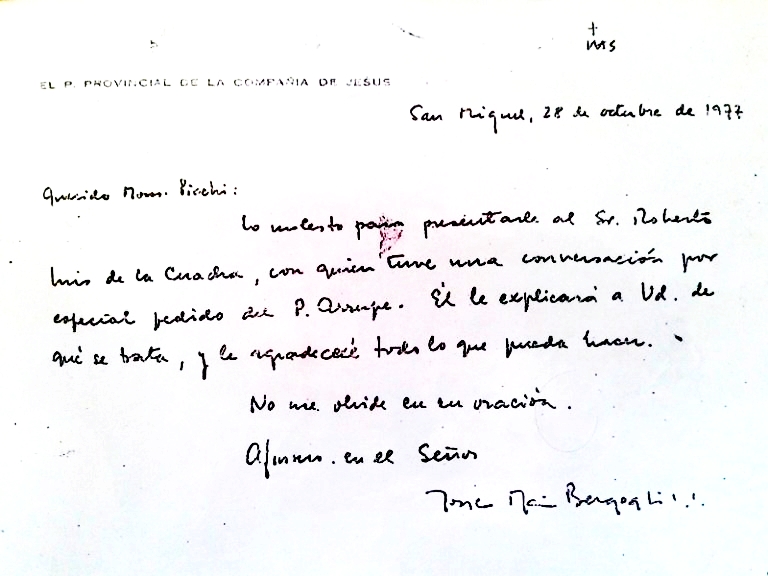 +
IHS
EL P. PROVINCIAL DE LA COMPAÑIA DE JESUS
San Miguel, 28 de octubre de 1977
Querido Mons. Picchi:
Lo molesto para presentarle al Sr. Roberto
Luis de la Cuadra, con quien tuve una conversación por
especial pedido del P. Arrupe. Él le explicará a Ud. de
qué se trata, y le agradeceré todo lo que pueda hacer.
No me olvide en su oración.
en el Señor
Bergoglio s.j.